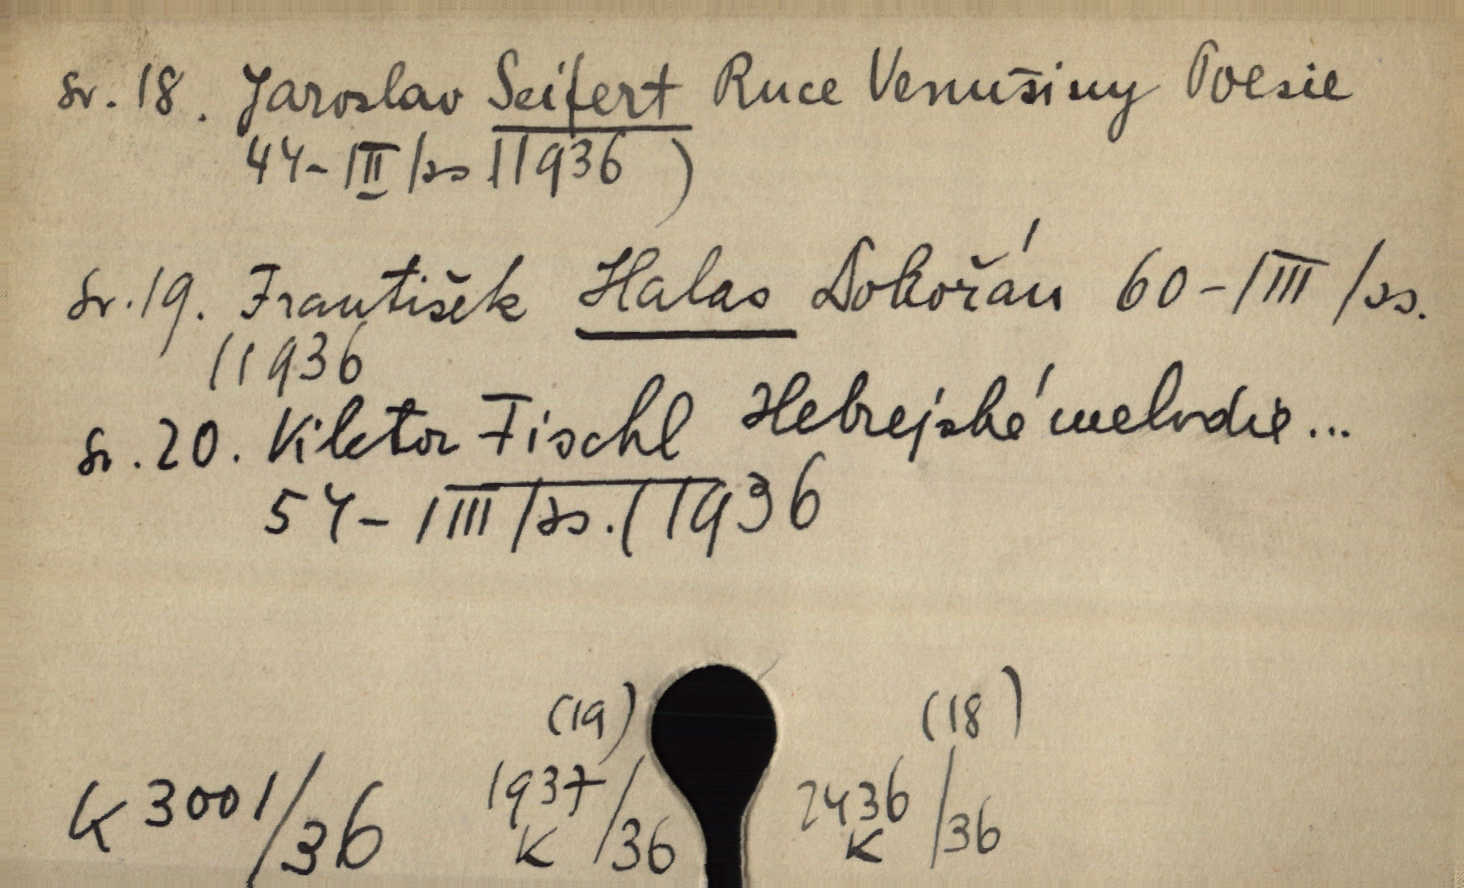 sv. 18. Jaroslav Seifert Ruce Venušiny Poesie
44-|II|/ss |1936)
sv. 19. František Halas Dokořán 60-|III|/ss.
|1936
sv. 20. Viktor Fischl Hebrejské melodie...
54-|III|/ss. (1936
(19) (18)
K 3001/36 1937/36 2436/36
K K